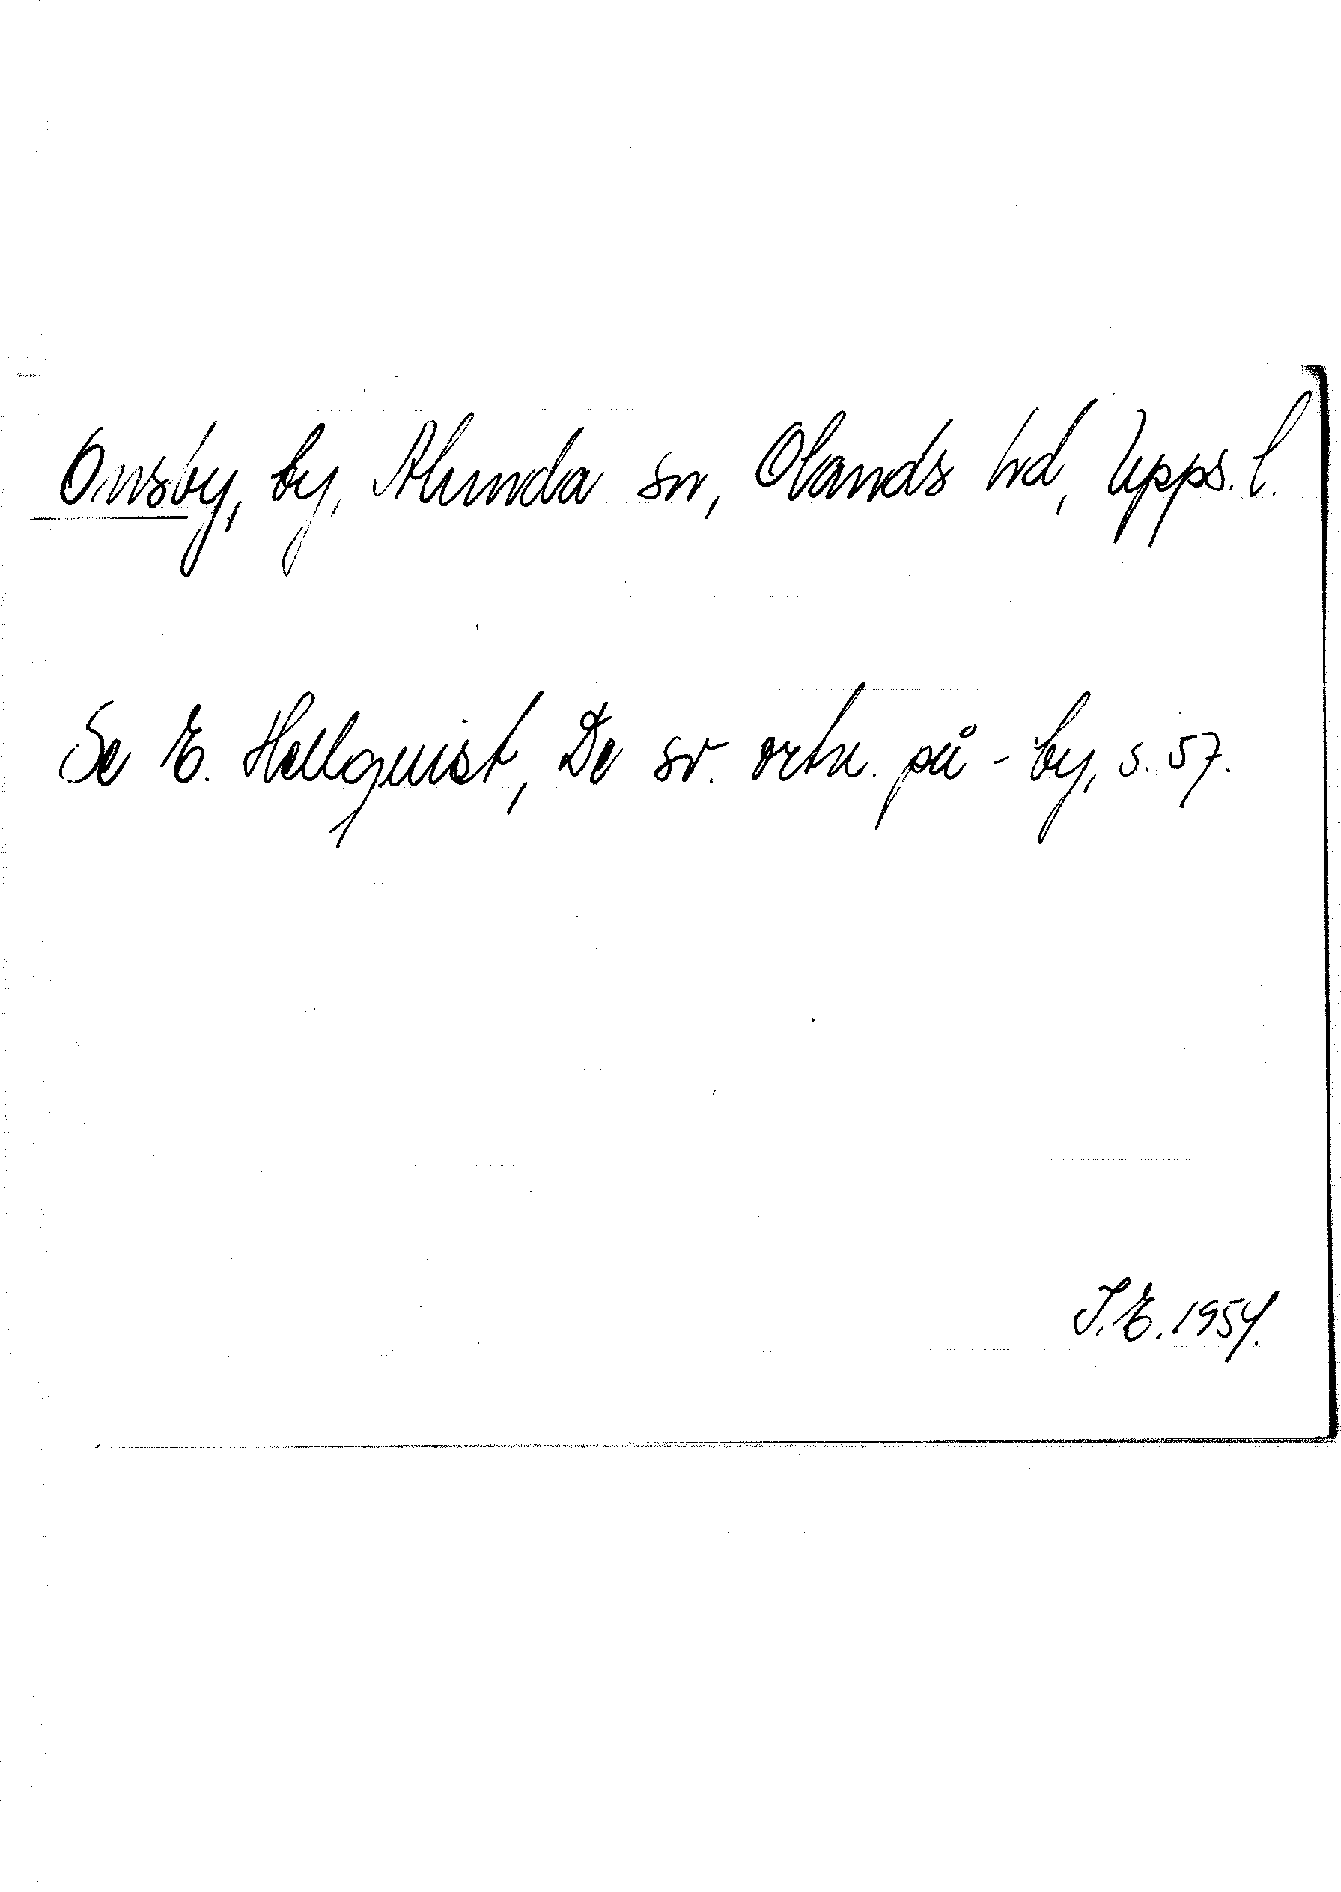 Onsby, by, Alunda sn, Olands hd, Upps. l.
Se E. Hellquist, De sv. ortn. på -by, s. 57.
I.E. 1954.